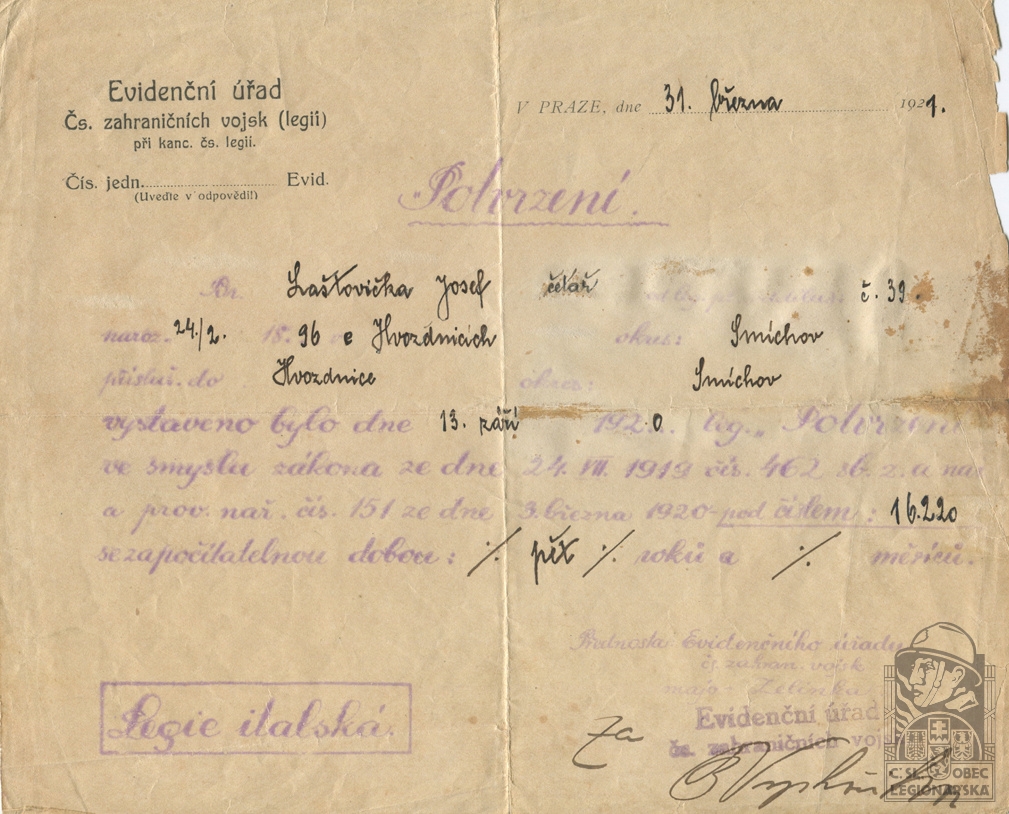 Evidenční úřad
Čs. zahraničních vojsk (legií)
při kanc. čs. legií.
Čís. jedn. Evid.
(Uveďte v odpovědi!)
V PRAZE, dne 31. března 1921.
Potvrzení.
Laštovička Josef četař č. 39.
naroz. 24/2. 18 96 v Hvozdnicích okres: Smíchov
přísluš. do Hvozdnice okres: Smíchov
vystaveno bylo dne 13. září 1920 leg. „Potvrzení
ve smyslu zákona ze dne 24. VII. 1919 čís. 462 sb. z. a nař
a prov. nař. čís. 151 ze dne 3. března 1920 pod číslem: 16.220
se započítatelnou dobou: ·/· pět ·/· roků a ·/· měsíců.
Přednosta Evidenčního úřadu
čs. zahran. vojsk
major Zelinka
Legie italská.
Evidenční úřad
čs. zahraničních vojsk
Za
Č.SL. OBEC
LEGIONÁŘSKÁ